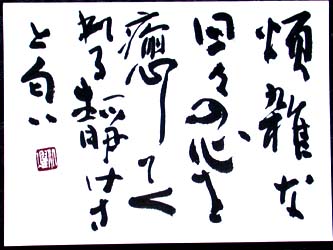 煩雑な
日々の心を
癒して
くれる静けさ
と匂い